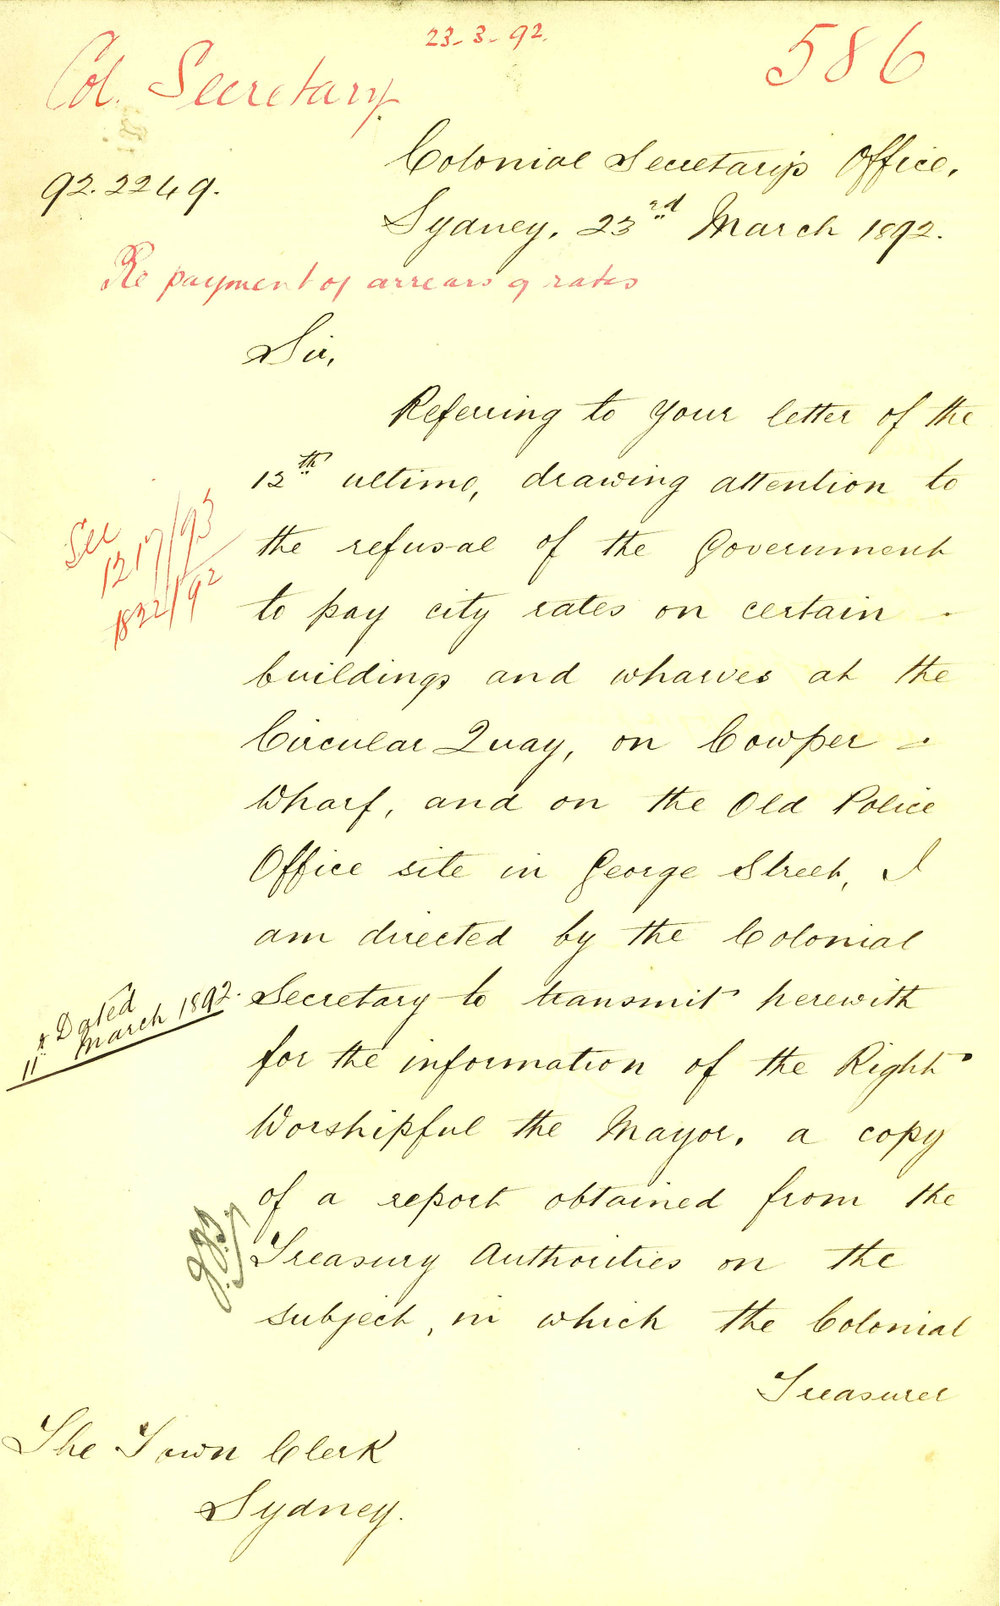 23-3-92.
586
Col. Secretary
Colonial Secretary's Office,
92.2249.
Sydney, 23rd March 1892.
Re payment of arrears of rates
Sir,
Referring to your letter of the
12th ultimo, drawing attention to
the refusal of the Government
to pay city rates on certain
buildings and wharves at the
Circular Quay, on Cowper
Wharf, and on the Old Police
Office site in George Street, I
am directed by the Colonial
Secretary to transmit herewith
for the information of the Right
Worshipful the Mayor, a copy
of a report obtained from the
Treasury Authorities on the
subject, in which the Colonial
Treasurer
See
1217/93
1832/92
Dated
11th March 1892.
The Town Clerk
Sydney.